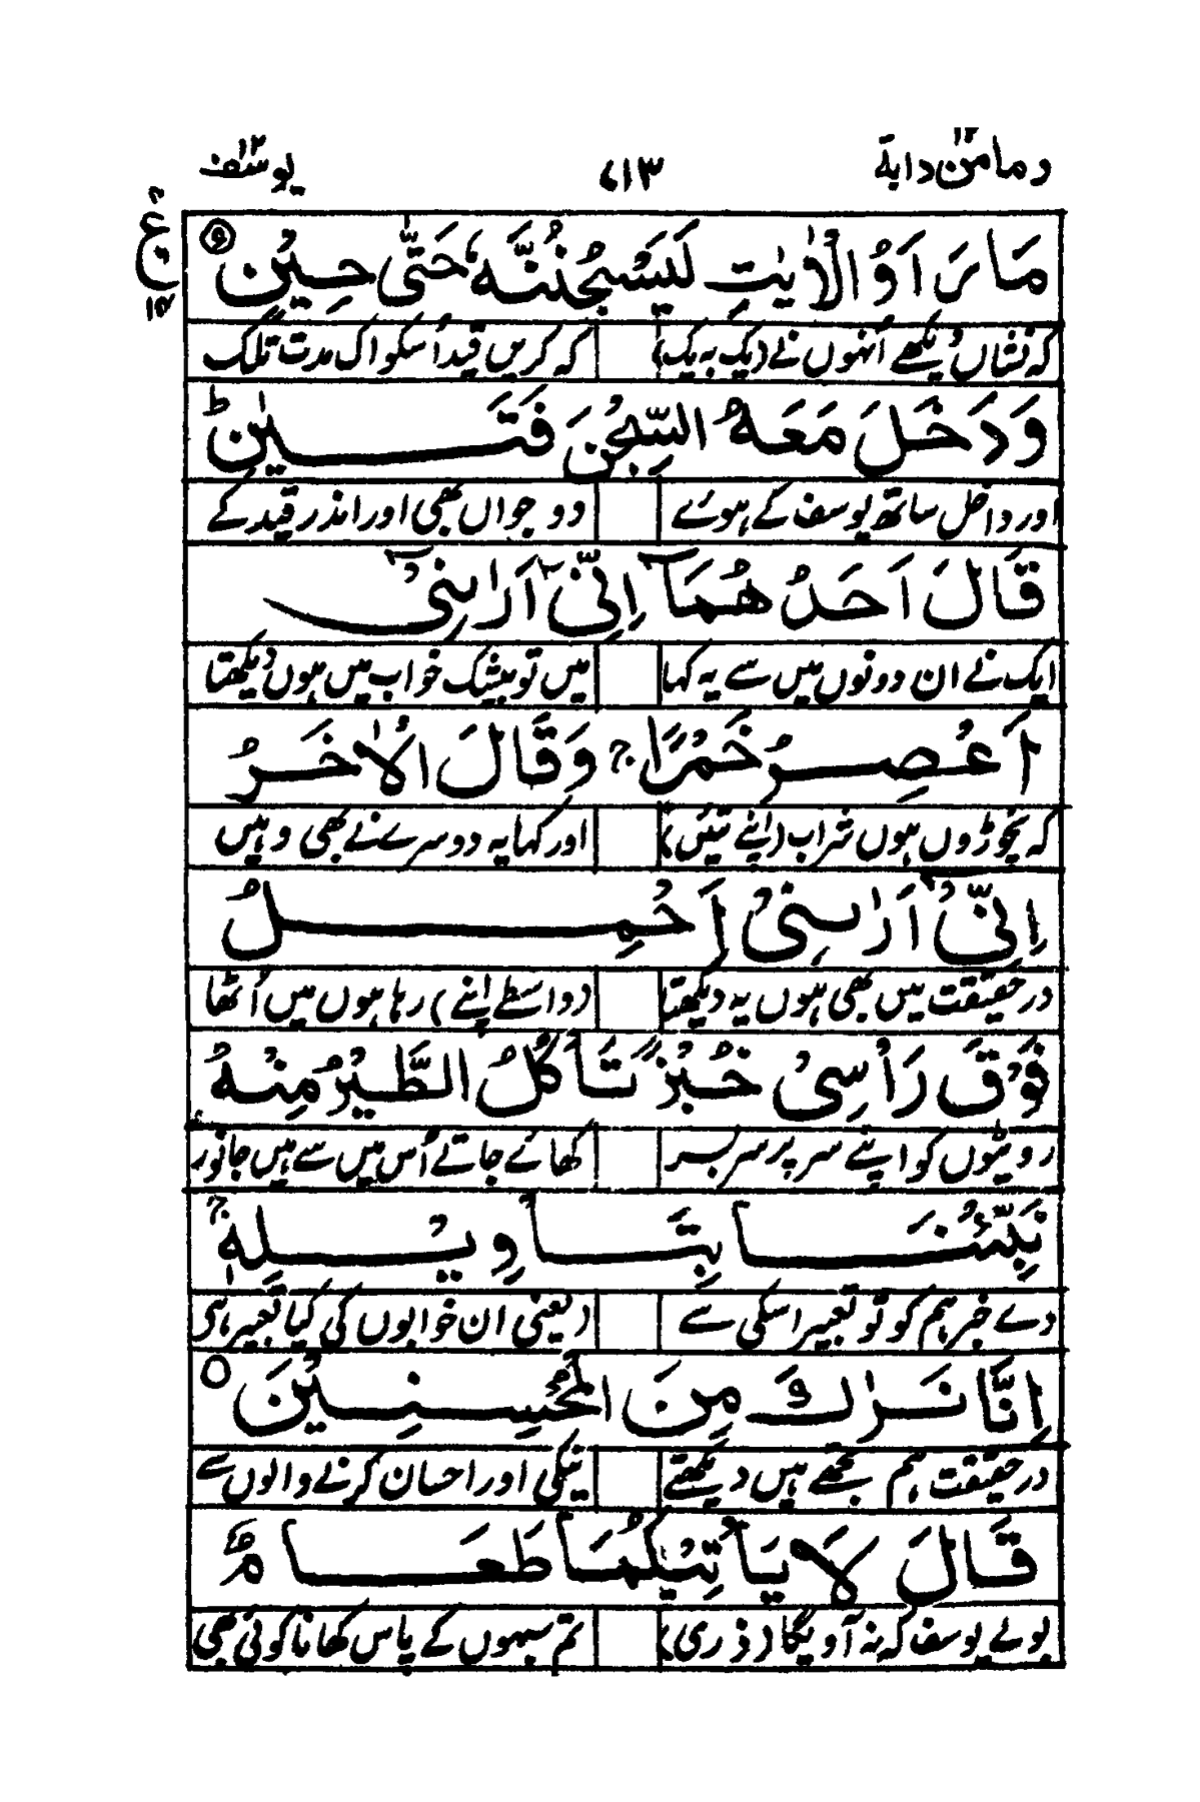 ومامن دابة ١٢ ٦١٣ يوسف ١٢
ع
مَا رَاَوُا الْاٰيٰتِ لَيَسْجُنُنَّهٗ حَتّٰى حِيْنٍ
کہ نشاں دیکھے اُنہوں نے (یک بہ یک) کہ کریں قید اُسکو اک مدت تلک
وَدَخَلَ مَعَهُ السِّجْنَ فَتَيٰنِ ط
اور داخل ساتھ یوسف کے ہوئے دو جواں بھی اور اندر قید کے
قَالَ اَحَدُهُمَآ اِنِّىْٓ اَرٰىنِىْٓ
ایک نے ان دونوں میں سے یہ کہا میں تو بیشک خواب میں ہوں دیکھتا
اَعْصِرُ خَمْرًا ج وَقَالَ الْاٰخَرُ
کہ نچوڑوں ہوں شراب (اپنے تئیں) اور کہا یہ دوسرے نے بھی وہیں
اِنِّىْٓ اَرٰىنِىْ اَحْمِلُ
در حقیقت میں بھی ہوں یہ دیکھتا (واسطے اپنے) رہا ہوں میں اُٹھا
فَوْقَ رَاْسِىْ خُبْزًا تَاْكُلُ الطَّيْرُ مِنْهُ
روٹیوں کو اپنے سر پر سر بسر کھائے جاتے اُس میں سے ہیں جانور
نَبِّئْنَا بِتَاْوِيْلِهٖ ج
دے خبر ہم کو تو تعبیر اسکی سے (یعنی ان خوابوں کی کیا تعبیر ہے)
اِنَّا نَرٰىكَ مِنَ الْمُحْسِنِيْنَ ○
در حقیقت ہم تجھے ہیں دیکھتے نیکی اور احسان کرنے والوں سے
قَالَ لَا يَاْتِيْكُمَا طَعَامٌ
بولے یوسف کہ نہ آویگا (ذری) تم سبہوں کے پاس کھانا کوئی بھی